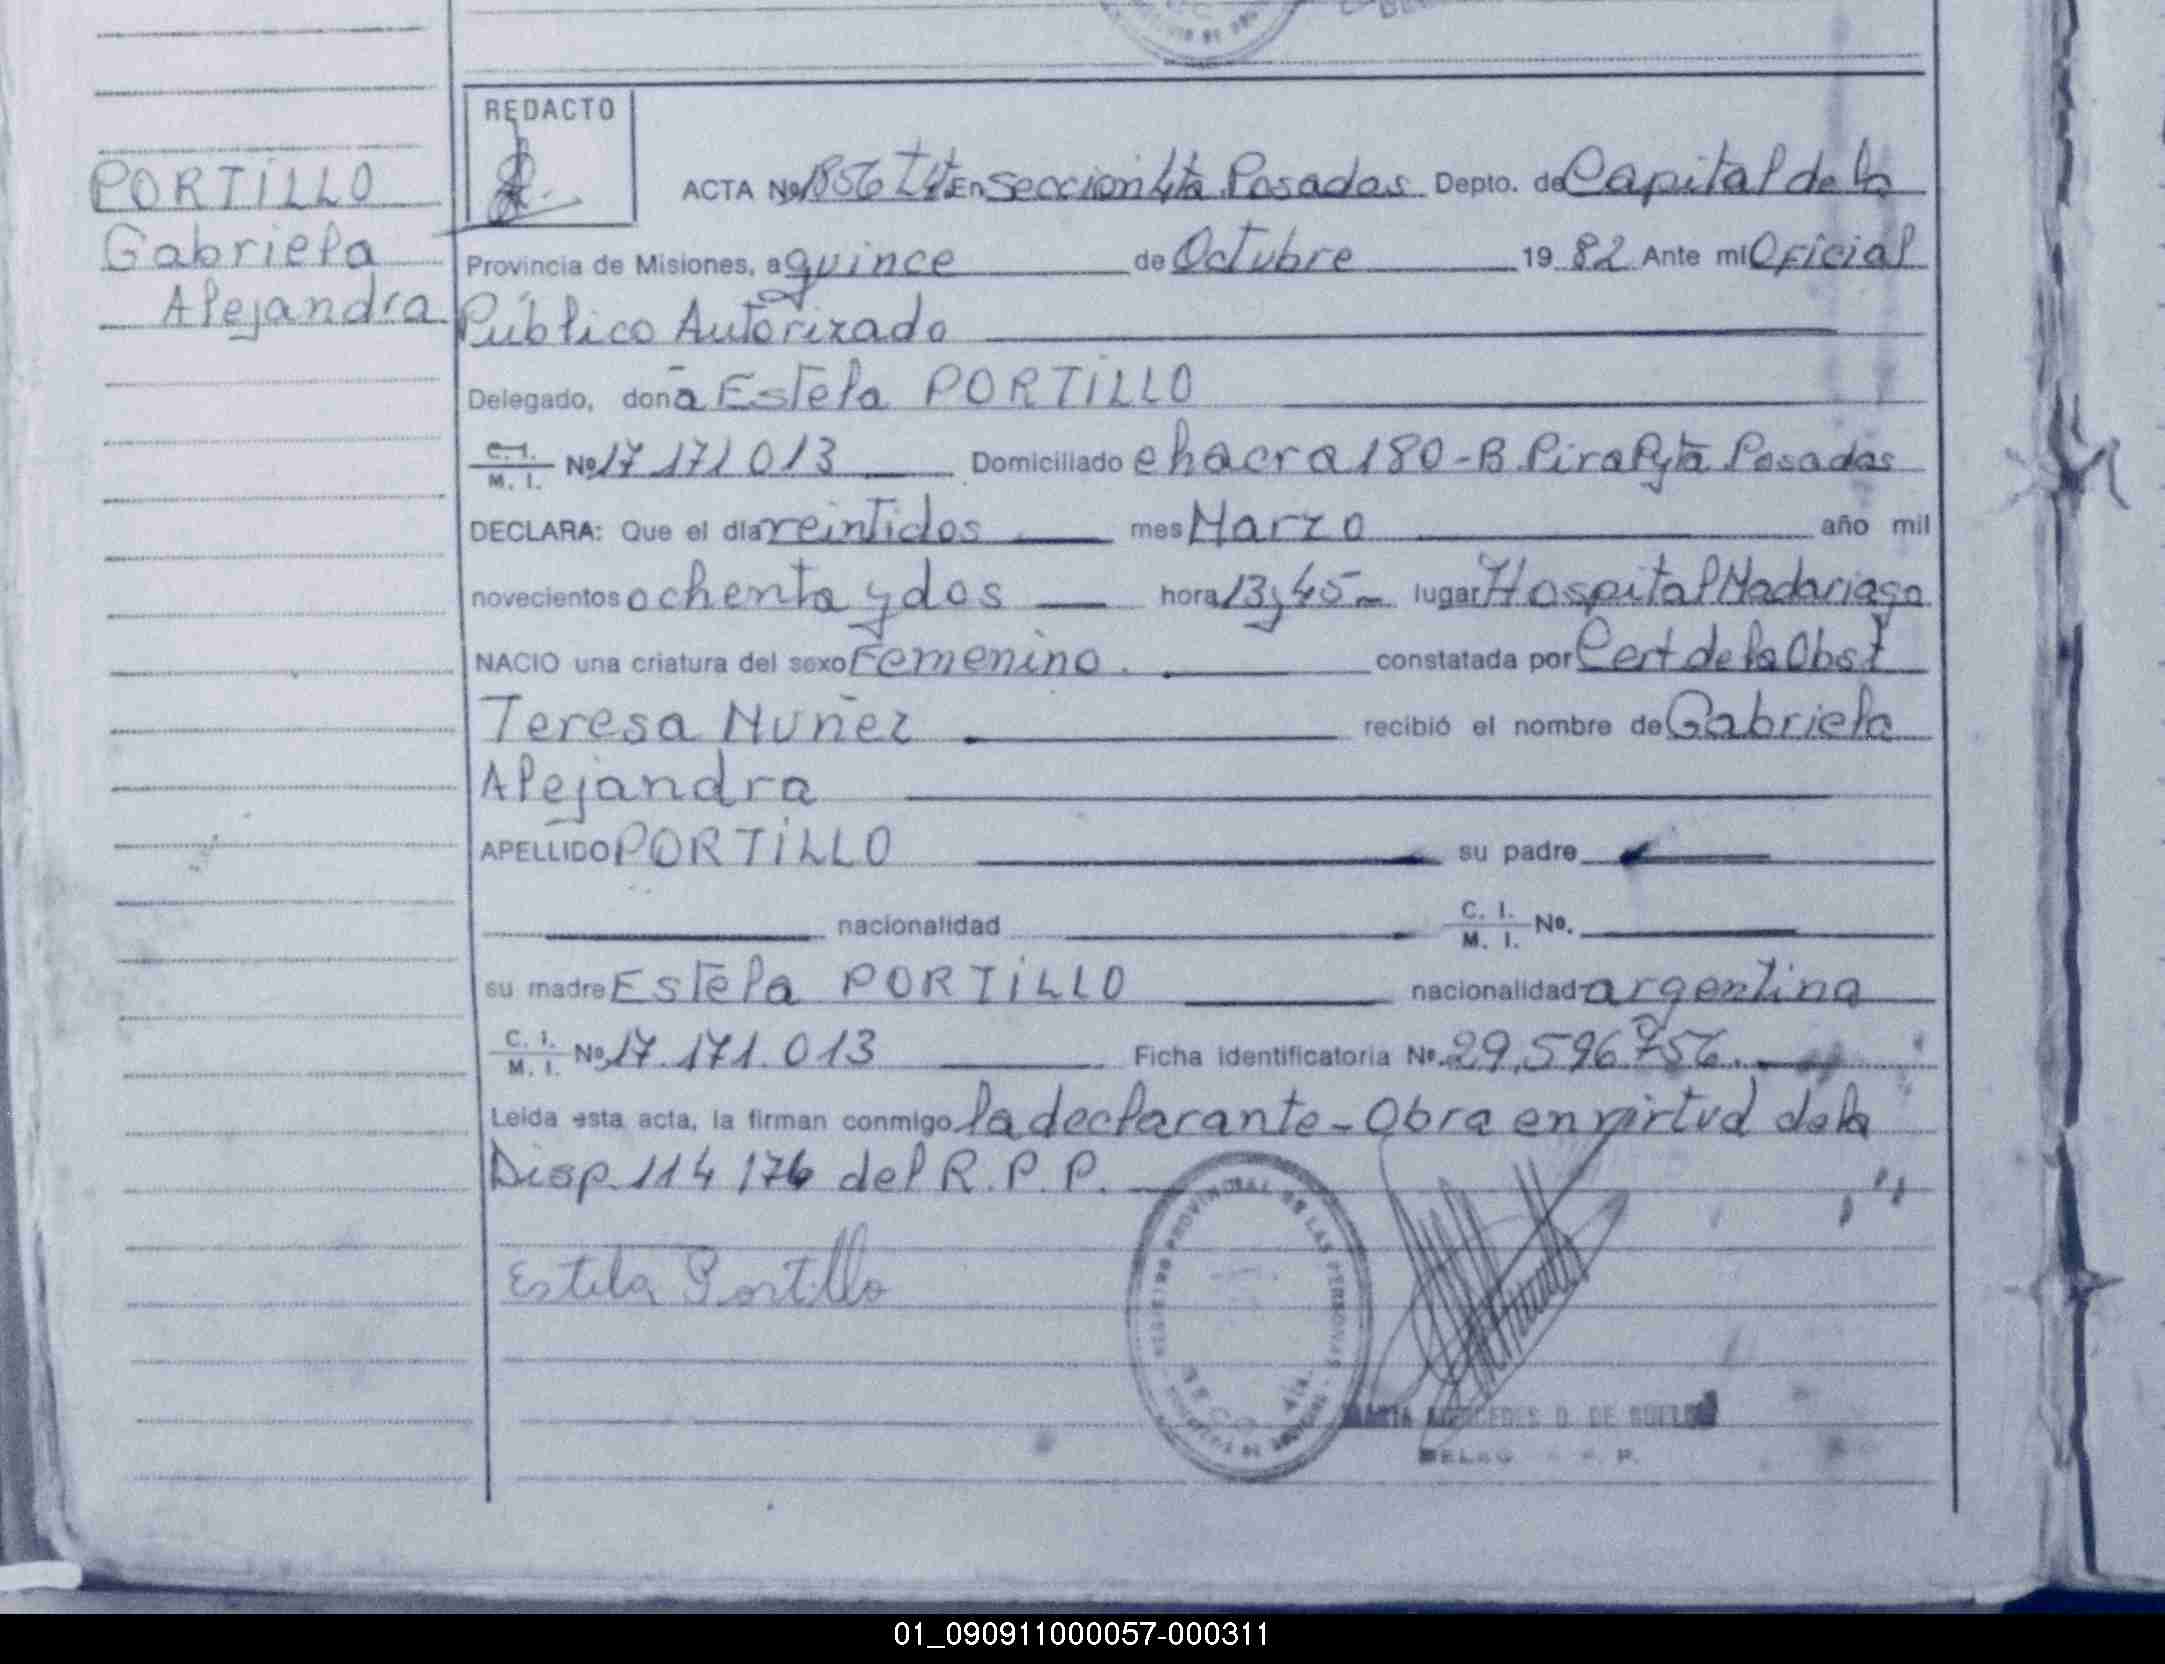 REDACTO
PORTILLO
Gabriela
Alejandra
ACTA Nº 1856 Tº 4º En Sección 4ta Posadas Depto. de Capital de la
Provincia de Misiones, a quince de Octubre 19 82 Ante mi Oficial
Público Autorizado
Delegado, doña Estela PORTILLO
C. I.
M. I. Nº 17 171 013 Domiciliado chacra 180-B Pirapytá Posadas
DECLARA: Que el día veintidos mes Marzo año mil
novecientos ochenta y dos hora 13,45 lugar Hospital Madariaga
NACIO una criatura del sexo Femenino. constatada por Cert de la Obst
Teresa Nuñez recibió el nombre de Gabriela
Alejandra
APELLIDO PORTILLO su padre
nacionalidad C. I. M. I. Nº.
su madre Estela PORTILLO nacionalidad argentina
C. I.
M. I. Nº 17.171.013 Ficha identificatoria Nº. 29.596.756.
Leída esta acta, la firman conmigo la declarante - Obra en virtud de la
Disp. 114/76 del R. P. P.
Estela Portillo
REGISTRO PROVINCIAL DE LAS PERSONAS
MERCEDES D. DE
01_090911000057-000311